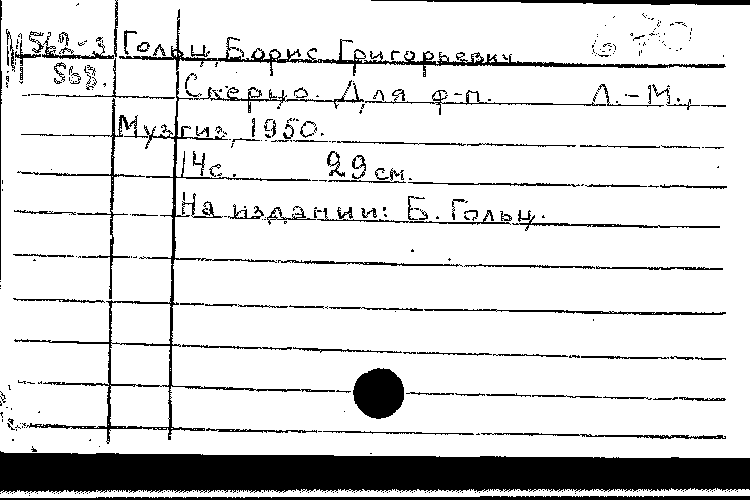 М 562-3 Гольц, Борис Григорьевич 6-70
568. Скерцо. Для ф-п. Л.-М.,
Музгиз, 1950.
14с. 29 см.
На издании: Б. Гольц.